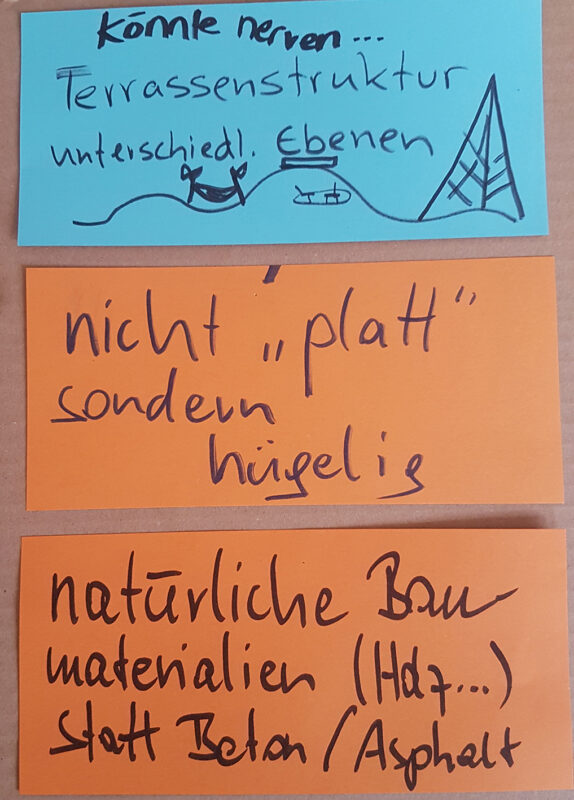 Könnte nerven...
Terrassenstruktur
unterschiedl. Ebenen
nicht „platt“
sondern
hügelig
natürliche Bau-
materialien (Holz...)
statt Beton / Asphalt